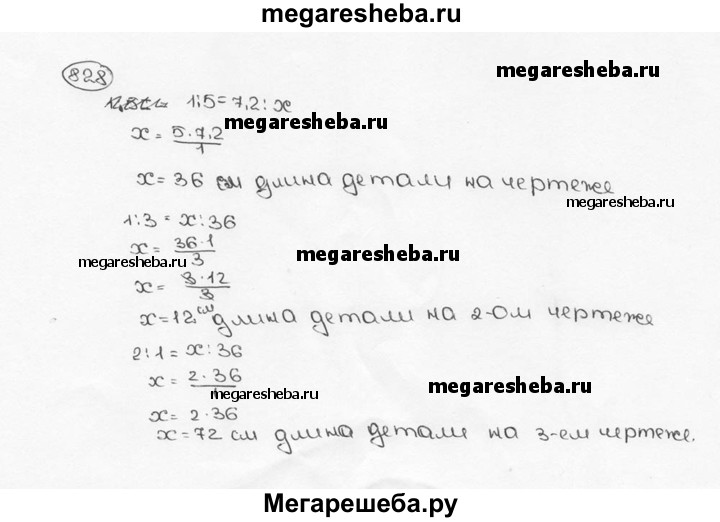 megaresheba.ru
828
megaresheba.ru
1:5=7,2:x
x = 5·7,2 megaresheba.ru
1
x=36 см длина детали на чертеже
megaresheba.ru
1:3 = x:36
x = 36·1 megaresheba.ru
3
megaresheba.ru
x = 3·12
3
x=12см длина детали на 2-ом чертеже
2:1 = x:36
x = 2·36 megaresheba.ru
megaresheba.ru
x = 2·36
x=72 см длина детали на 3-ем чертеже.
Мегарешеба.ру